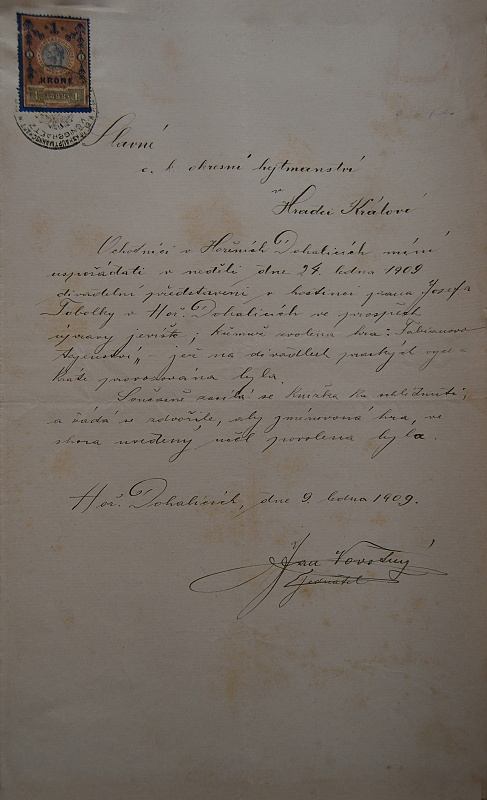 1
KRONE
Slavné
c. k. okresní hejtmanství
v
Hradci Králové
Ochodníci v Hořeních Dohalicích míní
uspořádati v neděli dne 24. ledna 1909
divadelní představení v hostinci pana Josefa
Tobolky v Hoř. Dohalicích ve prospěch
úpravy jeviště; k čemuž zvolena hra: "Fabianovo
tajemství" – jež na divadlech pražských
provozována byla.
Současně zasílá se knížka ku nahlédnutí,
a žádá se zdvořile, aby jmenovaná hra, ve
shora uvedený účel povolena byla.
Hoř. Dohalicích, dne 9. ledna 1909.
Jan Novotný
jednatel